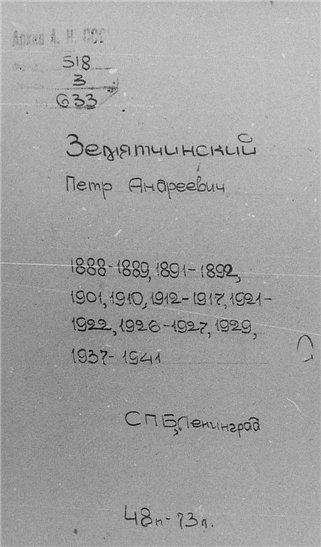 Архив А. Н. СССР
518
3
633
Земятчинский
Петр Андреевич
1888-1889, 1891-1892,
1901, 1910, 1912-1917, 1921-
1922, 1926-1927, 1929,
1937-1941
СПБ, Ленинград
48п-73л.